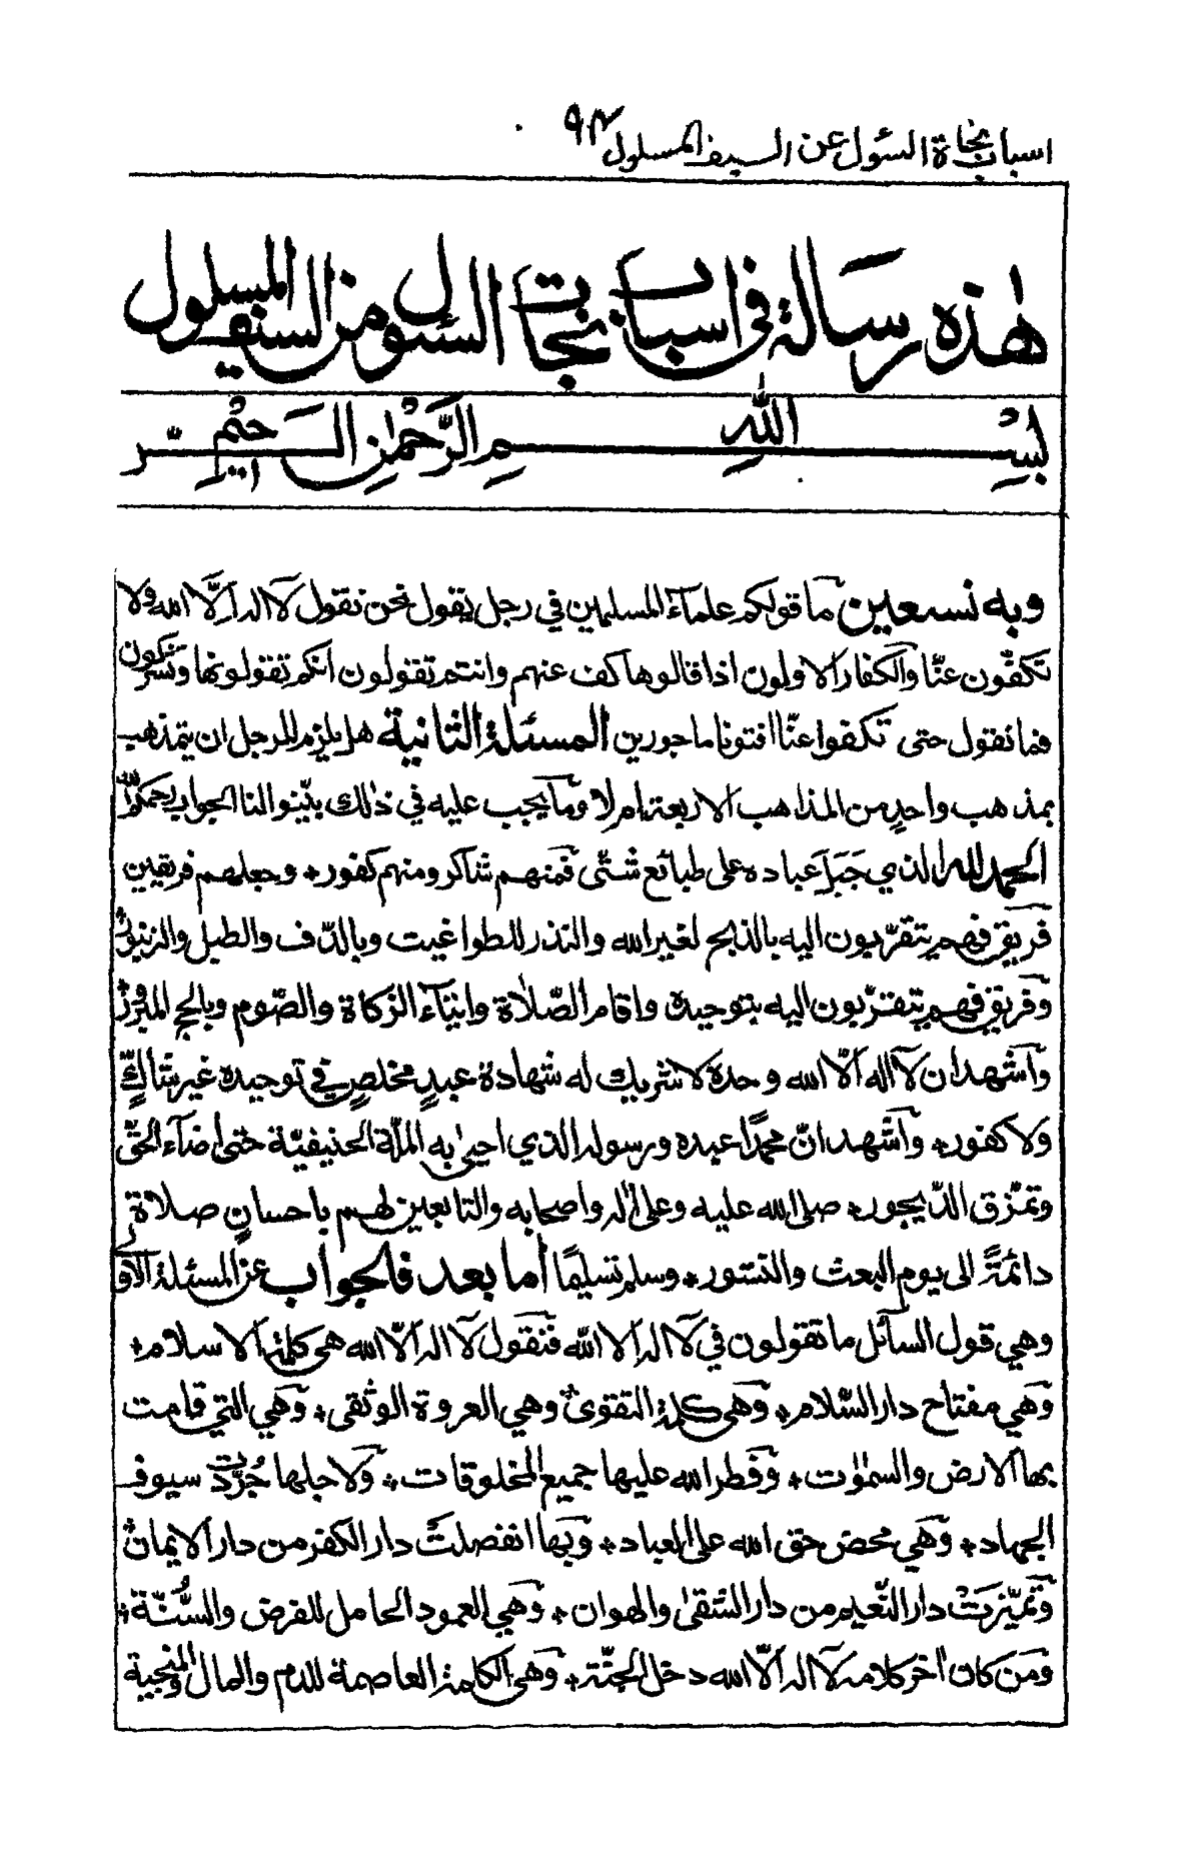 اسباب نجاة السئول عن السيف المسلول ٩٣
هذه رسالة في اسباب نجات السئول من السيف المسلول
بسم الله الرحمن الرحيم
وبه نسعين ما قولكم علمآء المسلمين في رجل يقول نحن نقول لآ اله الّا الله ولا
تكفّون عنّا والكفار الاولون اذا قالوها كف عنهم وانتم تقولون انكم تقولونها وتشركون
فما نقول حتى تكفوا عنّا افتونا ماجورين المسئلة الثانية هل يلزم للرجل ان يتمذهب
بمذهب واحدٍ من المذاهب الاربعة ام لا وما يجب عليه في ذلك بيّنوا لنا الجواب يرحمكم الله
الحمد لله الذي جَبَلَ عباده على طبائع شتّى فمنهم شاكر ومنهم كفور ٭ وجعلهم فريقين
فريق فهم يتقرّبون اليه بالذبح لغير الله والنذر للطواغيت وبالدّف والطبل والزنبور
وفريق فهم يتقرّبون اليه بتوحيده واقام الصّلاة وايتآء الزكاة والصّوم وبالحج المبرور
وآشهد ان لآ اله الّا الله وحده لا شريك له شهادة عبدٍ مخلصٍ في توحيده غير شاكٍّ
ولا كفور ٭ وآشهد انّ محمدًا عبده ورسوله الذي احيى به الملّة الحنيفيّة حتى اضآء الحقّ
وتمزّق الدّيجور ٭ صلى الله عليه وعلى آله واصحابه والتابعين لهم باحسانٍ صلاةً
دائمةً الى يوم البعث والنشور ٭ وسلم تسليمًا أما بعد فالجواب عن المسئلة الاولى
وهي قول السآئل ما تقولون في لآ اله الا الله فنقول لآ اله الّا الله هي كلمة الاسلام ٭
وهي مفتاح دار السّلام ٭ وهي كلمة التقوى وهي العروة الوثقى ٭ وهي التي قامت
بها الارض والسموٰت ٭ وفطر الله عليها جميع المخلوقات ٭ ولاجلها جُرّدت سيوف
الجهاد ٭ وهي محض حق الله على العباد ٭ وبها انفصلت دار الكفر من دار الايمان
وتميّزت دار النّعيم من دار الشقى والهوان ٭ وهي العمود الحامل للفرض والسُّنّة ٭
ومن كان آخر كلامه لآ اله الّا الله دخل الجنّة ٭ وهي الكلمة العاصمة للدم والمال والمنجية